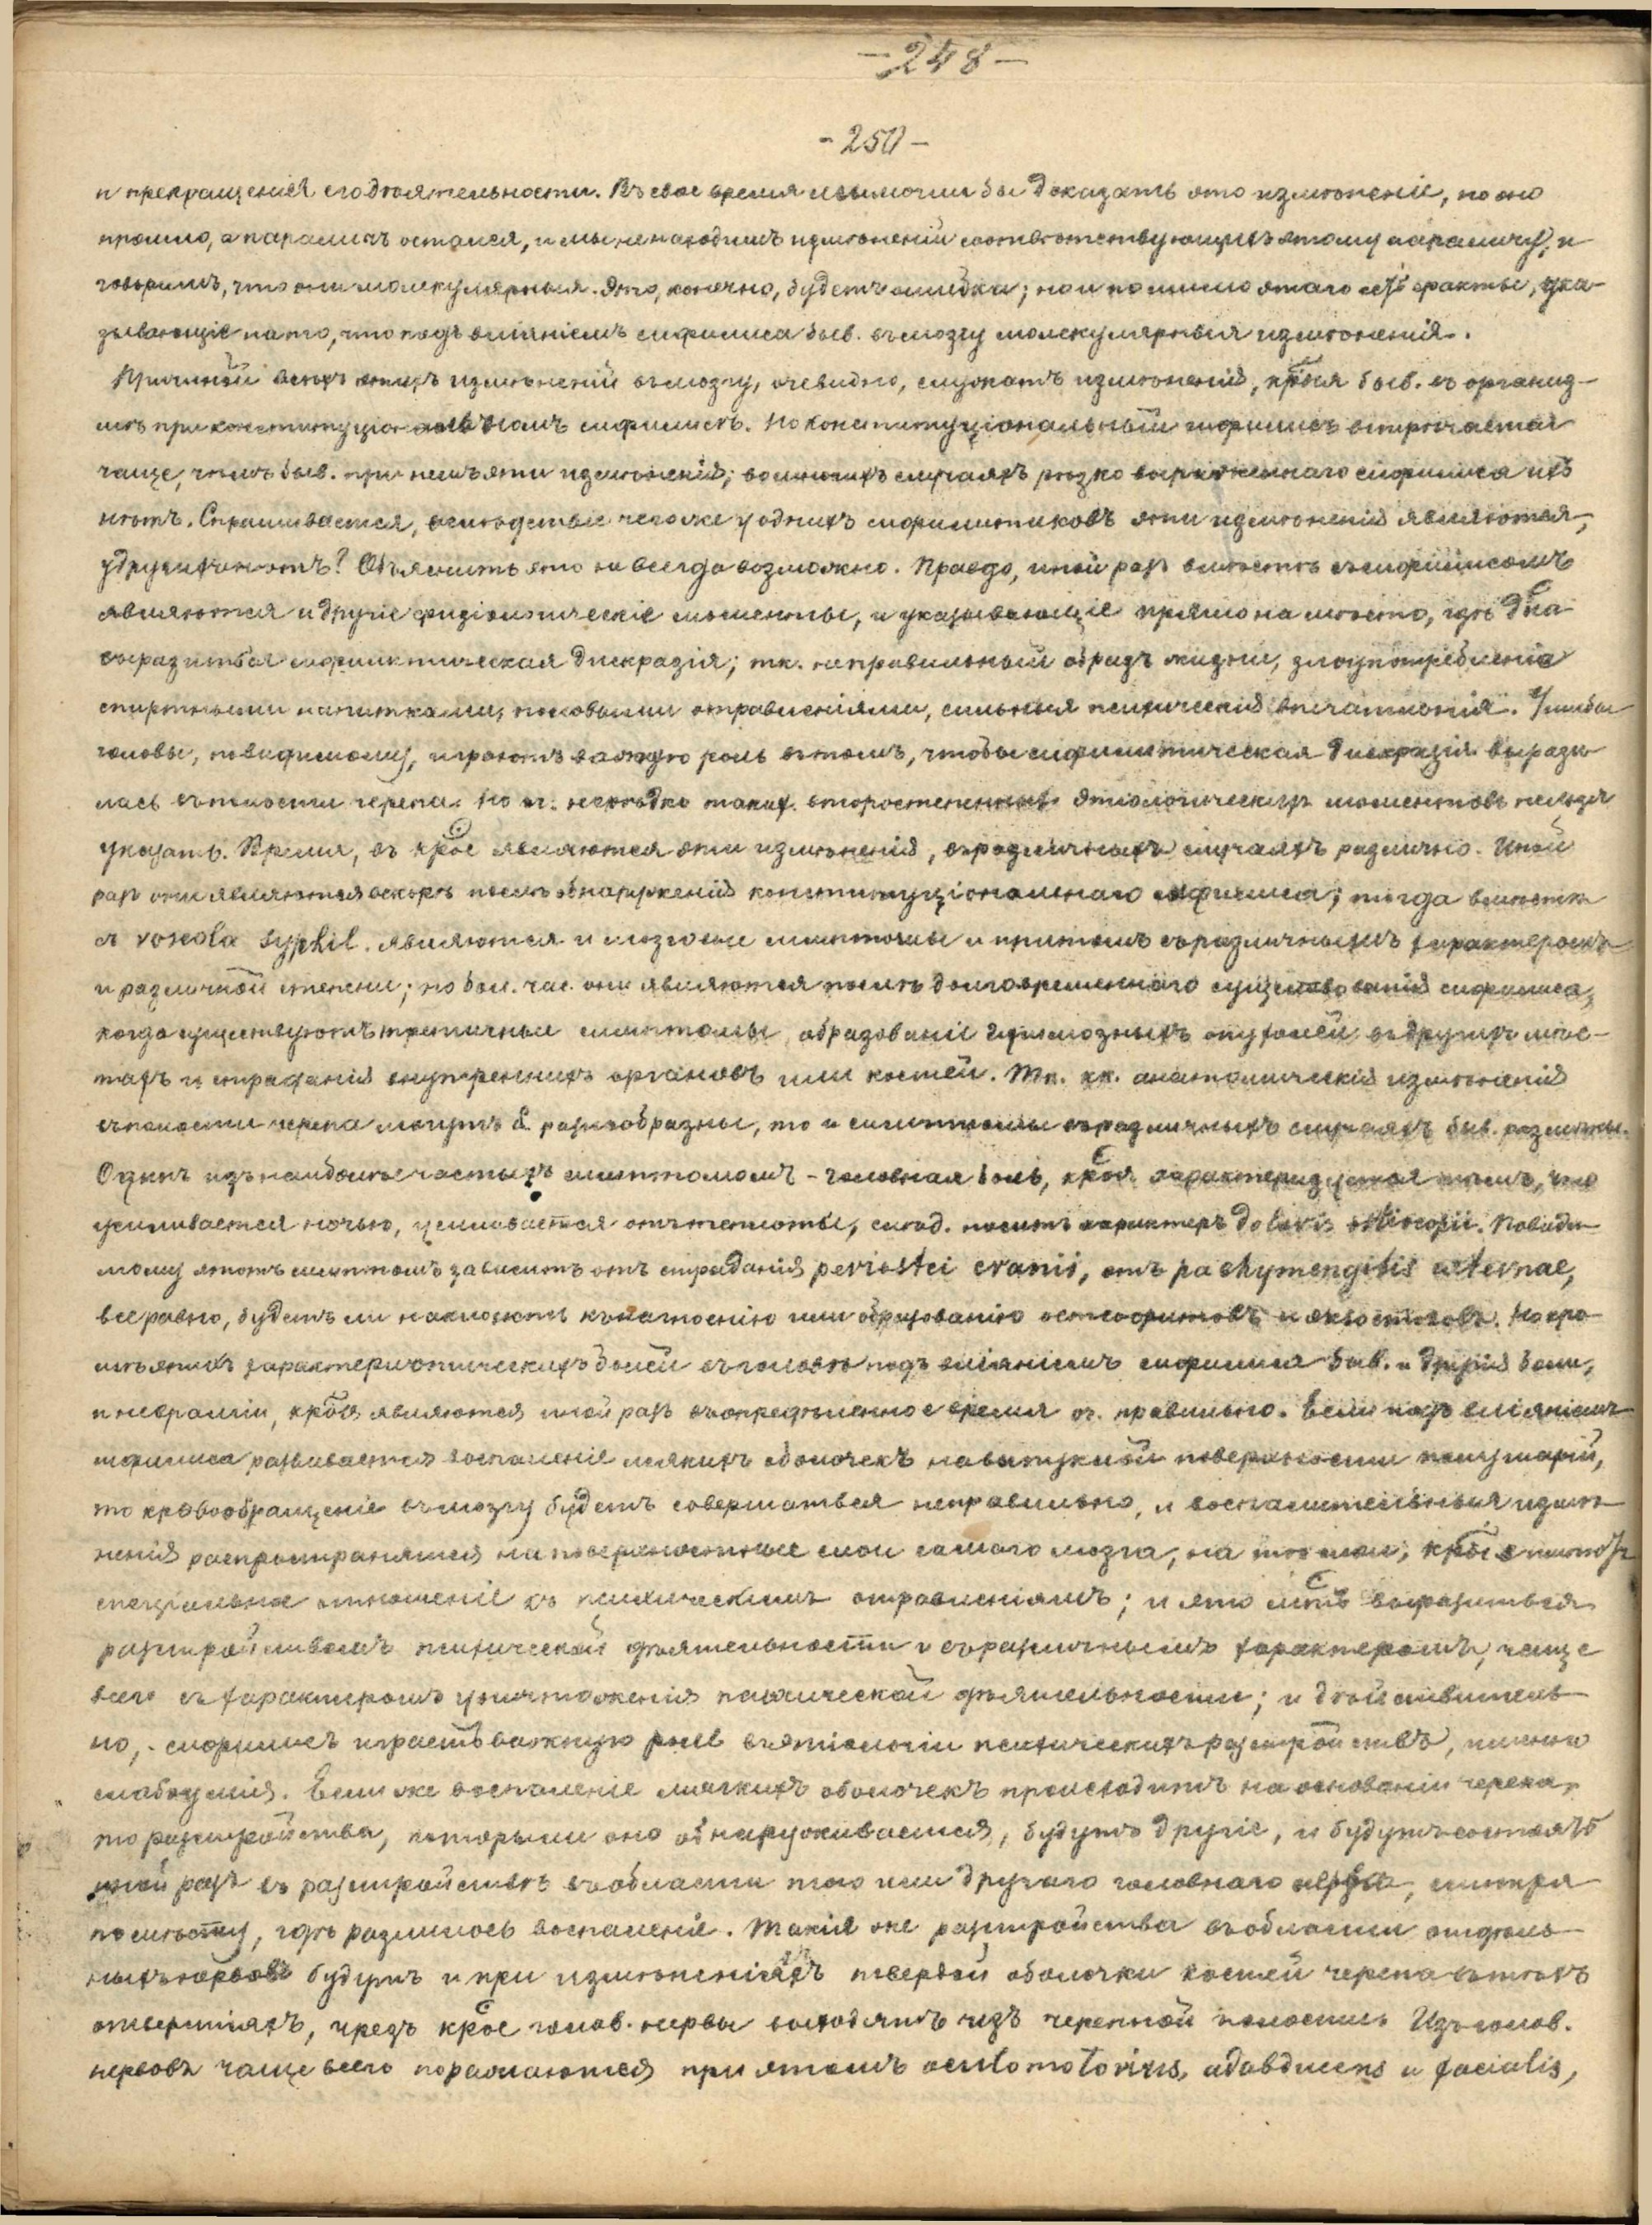 -248-
-250-
и прекращенія его дѣятельности. Въ свое время мы могли бы доказать это измѣненіе, но оно
прошло, а параличъ остался, и мы не находимъ измѣненій соотвѣтствующихъ этому параличу, и
говоримъ, что они молекулярныя. Это, конечно, будетъ ошибка; но и помимо этаго есть факты, ука-
зывающіе на то, что подъ вліяніемъ сифилиса быв. въ мозгу молекулярныя измѣненія.
Причиной всѣхъ этихъ измѣненій въ мозгу, очевидно, служатъ измѣненія, крыя быв. въ организ-
мѣ при конституціональномъ сифилисѣ. Но конституціональный сифилисъ встрѣчается
чаще, чѣмъ быв. при немъ эти измѣненія; во многихъ случаяхъ рѣзко выраженнаго сифилиса ихъ
нѣтъ. Спрашивается, вслѣдствіе чего же у однихъ сифилитиковъ эти измѣненія являются,
у другихъ нѣтъ? Объяснить это не всегда возможно. Правда, иной разъ вмѣстѣ съ сифилисомъ
являются и другіе физіологическіе моменты, и указывающіе прямо на мѣсто, гдѣ дна
выразиться сифилитическая дискразія; тк. неправильный образъ жизни, злоупотребленіе
спиртными напитками, половыми отправленіями, сильныя психическія впечатлѣнія. Ушибы
головы, повидимому, играютъ важную роль въ томъ, чтобы сифилитическая дискразія вырази-
лась въ полости черепа. Но оч. нерѣдко такихъ второстепенныхъ этіологическихъ моментовъ нельзя
указать. Время, въ крое являются эти измѣненія, въ различныхъ случаяхъ различно. Иной
разъ они являются вскорѣ послѣ обнаруженія конституціональнаго сифилиса; тогда вмѣстѣ
съ roseola syphil. являются и мозговые симптомы и притомъ съ различнымъ характеромъ
и различной степени; но бол. час. они являются послѣ долговременнаго существованія сифилиса,
когда существуютъ третичные симптомы, образованіе гуммозныхъ опухолей въ другихъ мѣс-
тахъ и страданія внутреннихъ органовъ или костей. Тк. кк. анатомическія измѣненія
въ полости черепа могутъ б. разнообразны, то и симптомы въ различныхъ случаяхъ быв. различны.
Одинъ изъ наиболѣе частыхъ симптомомъ - головная боль, края характеризуется тѣмъ, что
усиливается ночью, усиливается отъ теплоты, слѣд. носитъ характеръ doloris osteocopii. Повиди-
мому этотъ симптомъ зависитъ отъ страданія periostei cranii, отъ pachymengitis externae,
все равно, будетъ ли наклонность къ нагноенію или образованію остеофитовъ и экзостозовъ. Но кро-
мѣ этихъ характеристическихъ болей въ головѣ подъ вліяніемъ сифилиса быв. и другія боли,
и невралгіи, крыя являются иной разъ въ опредѣленное время оч. правильно. Если подъ вліяніемъ
сифилиса развивается воспаленіе мягкихъ оболочекъ на выпуклой поверхности полушарій,
то кровообращеніе въ мозгу будетъ совершаться неправильно, и воспалительныя измѣ-
ненія распространяются на поверхностные слои самаго мозга, на тѣ слои, крые имѣютъ
спеціальное отношеніе къ психическимъ отправленіямъ; и это выразиться
разстройствомъ психической дѣятельности съ различнымъ характеромъ, чаще
всего съ характеромъ уничтоженія психической дѣятельности; и дѣйствитель-
но, сифилисъ играетъ важную роль въ этіологіи психическихъ разстройствъ, именно
слабоумія. Если же воспаленіе мягкихъ оболочекъ происходитъ на основаніи черепа,
то разстройства, которыми оно обнаруживается, будутъ другіе, и будутъ состоять
иной разъ въ разстройствѣ въ области того или другаго головнаго нерва, смотря
по мѣсту, гдѣ развилось воспаленіе. Такія же разстройства въ области отдѣль-
ныхъ нервовъ будутъ и при измѣненіяхъ твердой оболочки костей черепа въ тѣхъ
отверстіяхъ, чрезъ крые голов. нервы выходятъ изъ черепной полости. Изъ голов.
нервовъ чаще всего поражаются при этомъ oculomotorius, abducens и facialis,